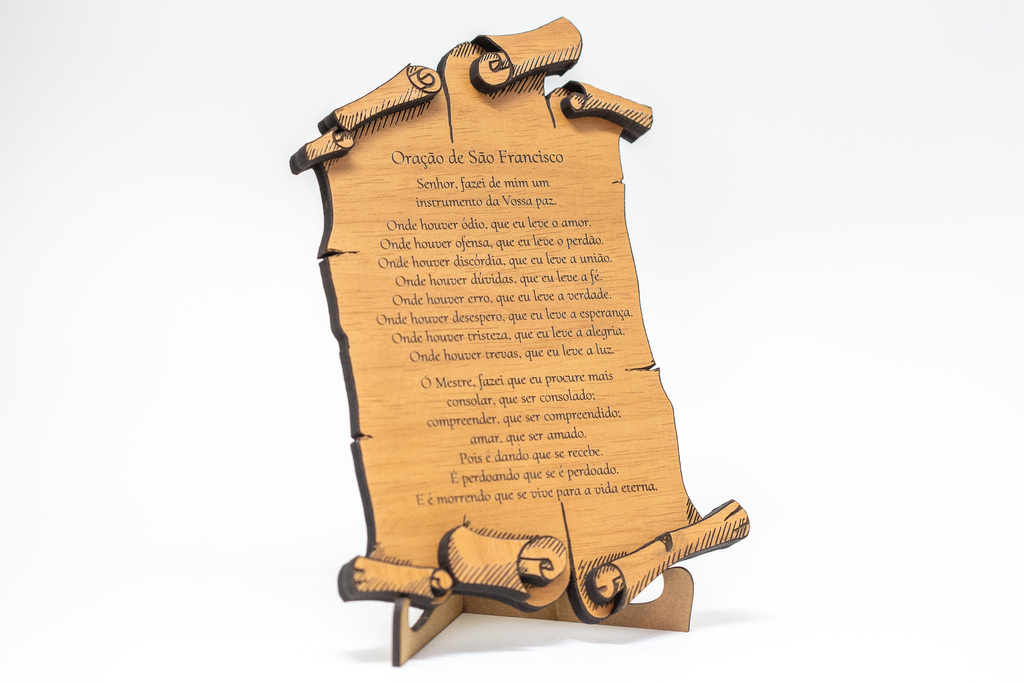 Oração de São Francisco
Senhor, fazei de mim um
instrumento da Vossa paz.
Onde houver ódio, que eu leve o amor.
Onde houver ofensa, que eu leve o perdão.
Onde houver discórdia, que eu leve a união.
Onde houver dúvidas, que eu leve a fé.
Onde houver erro, que eu leve a verdade.
Onde houver desespero, que eu leve a esperança.
Onde houver tristeza, que eu leve a alegria.
Onde houver trevas, que eu leve a luz.
Ó Mestre, fazei que eu procure mais
consolar, que ser consolado;
compreender, que ser compreendido;
amar, que ser amado.
Pois é dando que se recebe.
É perdoando que se é perdoado.
E é morrendo que se vive para a vida eterna.